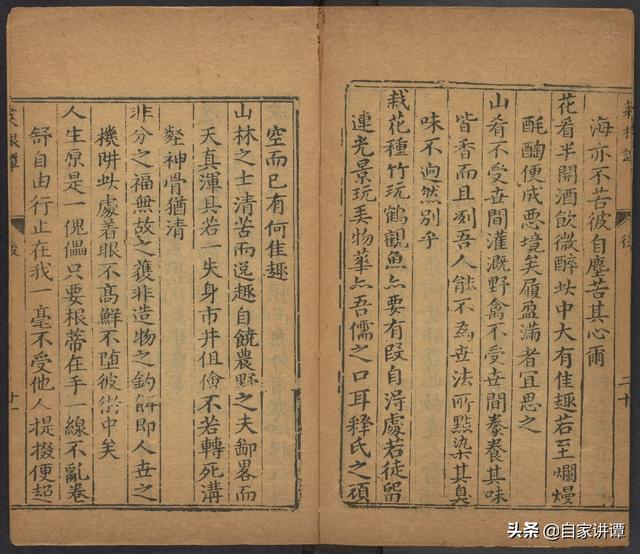 菜根譚 後 二十
海亦不苦彼自塵苦其心爾
花看半開酒飲微醉此中大有佳趣若至爛熳
酕醄便成惡境矣履盈滿者宜思之
山肴不受世間灌溉野禽不受世間豢養其味
皆香而且冽吾人能不為世法所點染其臭
味不迥然別乎
栽花種竹玩鶴觀魚亦要有段自得處若徒留
連光景玩弄物華亦吾儒之口耳釋氏之頑
空而已有何佳趣
山林之士清苦而逸趣自饒農野之夫鄙畧而
天真渾具若一失身市井伹儈不若轉死溝
壑神骨猶清
非分之福無故之獲非造物之釣餌即人世之
機阱此處着眼不高鮮不墮彼術中矣
人生原是一傀儡只要根蒂在手一線不亂卷
舒自由行止在我一毫不受他人提掇便超
菜根譚 後
头条 @自家讲谭